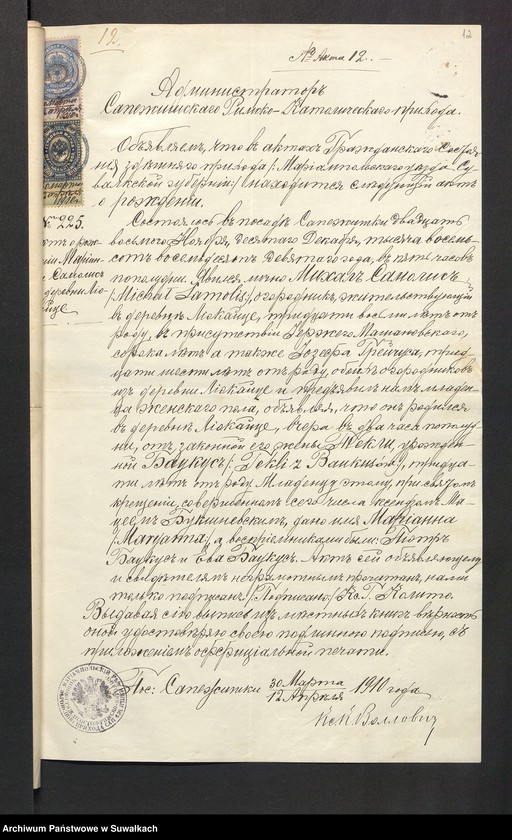 12.
12
№ Акта 12.
Администраторъ
Сапежишскаго Римско-Католическаго прихода.
Объявляемъ, что въ актахъ Гражданскаго Состоя-
ния здѣшняго прихода /: Маріампольскаго уѣзда Су-
валкской губерніи:/ находится слѣдующій актъ
о рожденіи.
№ 225.
Состоялось въ посадѣ Сапежишки двадцать
восьмого Ноября, десятаго Декабря, тысяча восемь-
сотъ восемьдесятъ девятаго года, въ пять часовъ
пополудни. Явился лично Михаилъ Самолисъ
/:Michał Samolis:/ огородникъ, жительствующій
въ деревнѣ, тридцати восьми лѣтъ отъ
роду, въ присутствіи
сорока лѣтъ а также Іозефа, трид-
цати шести лѣтъ отъ роду, обоихъ огородниковъ
изъ деревни и предъявилъ намъ младен-
ца женскаго пола, объявляя, что онъ родился
въ деревнѣ, вчера въ два часа пополуд-
ни, отъ законной его жены Теклі, урожден-
ной Баукусъ /: Tekli z Baukusów:/, тридца-
ти лѣтъ отъ роду. Младенцу этому, при святомъ
крещеніи, совершенномъ сего числа ксендзомъ Ма-
Букишевскимъ, дано имя Маріанна
/:Maryanna:/, а воспріемниками были: Піотръ
Баукусъ и Ева Баукусъ. Актъ сей объявляющему
и свидѣтелямъ неграмотнымъ прочитанъ, нами
только подписанъ. /:Подписано:/ Кс. Г.
Выдавая сію выпись изъ мѣстныхъ книгъ вѣрность
оной удостовѣряю своею подлинною подписью, съ
приложеніемъ оффиціальной печати.
Пос: Сапежишки 30 Марта
12 Апрѣля 1910 года
Воллович
Archiwum Państwowe w Suwałkach